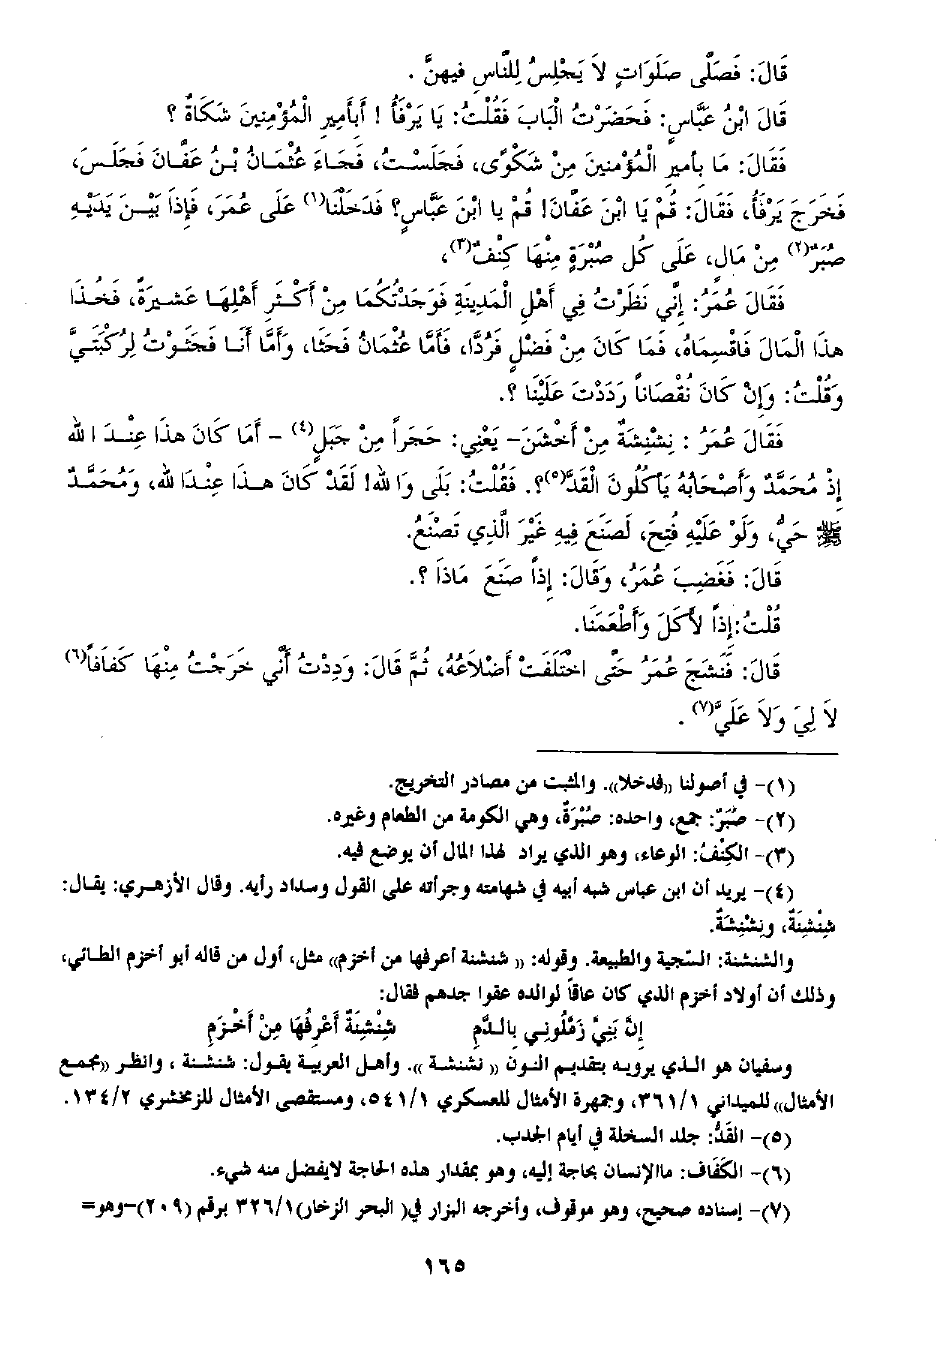 قَالَ: فَصَلَّى صَلَوَاتٍ لاَ يَجْلِسُ لِلنَّاسِ فِيهِنَّ .
قَالَ ابْنُ عَبَّاسٍ: فَحَضَرْتُ الْبَابَ فَقُلْتُ: يَا يَرْفَأُ ! أَبِأَمِيرِ الْمُؤْمِنِينَ شَكَاةٌ ؟
فَقَالَ: مَا بِأَمِيرِ الْمُؤْمِنِينَ مِنْ شَكْوًى، فَجَلَسْتُ، فَجَاءَ عُثْمَانُ بْنُ عَفَّانَ فَجَلَسَ،
فَخَرَجَ يَرْفَأُ، فَقَالَ: قُمْ يَا ابْنَ عَفَّانَ! قُمْ يَا ابْنَ عَبَّاسٍ؟ فَدَخَلْنَا(١) عَلَى عُمَرَ، فَإِذَا بَيْنَ يَدَيْهِ
صُبَرٌ(٢) مِنْ مَالٍ، عَلَى كُلِ صُبْرَةٍ مِنْهَا كِنْفٌ(٣)،
فَقَالَ عُمَرُ: إِنِّي نَظَرْتُ فِي أَهْلِ الْمَدِينَةِ فَوَجَدْتُكُمَا مِنْ أَكْثَرِ أَهْلِهَا عَشِيرَةً، فَخُذَا
هذَا الْمَالَ فَاقْسِمَاهُ، فَمَا كَانَ مِنْ فَضْلٍ فَرُدَّا، فَأَمَّا عُثْمَانُ فَحَثَا، وَأَمَّا أَنَا فَجَثَوْتُ لِرُكْبَتَيَّ
وَقُلْتُ: وَإِنْ كَانَ نُقْصَاناً رَدَدْتَ عَلَيْنَا ؟.
فَقَالَ عُمَرُ : نِشْنِشَةٌ مِنْ أَخْشَنَ- يَعْنِي: حَجَراً مِنْ جَبَلٍ(٤) - أَمَا كَانَ هذَا عِنْدَ ا لله
إِذْ مُحَمَّدٌ وَأَصْحَابُهُ يَأْكُلُونَ الْقَدَّ(٥)؟. فَقُلْتُ: بَلَى وَا لله! لَقَدْ كَانَ هذَا عِنْدَا لله، وَمُحَمَّدٌ
ﷺ حَيٌّ، وَلَوْ عَلَيْهِ فُتِحَ، لَصَنَعَ فِيهِ غَيْرَ الَّذِي تَصْنَعُ.
قَالَ: فَغَضِبَ عُمَرُ، وَقَالَ: إِذاً صَنَعَ مَاذَا ؟.
قُلْتُ:إِذاً لأَكَلَ وَأَطْعَمَنَا.
قَالَ: فَنَشَجَ عُمَرُ حَتَّى اخْتَلَفَتْ أَضْلاَعُهُ، ثُمَّ قَالَ: وَدِدْتُ أَنِّي خَرَجْتُ مِنْهَا كَفَافاً(٦)
لاَ لِيَ وَلاَ عَلَيَّ(٧) .
(١)- في أصولنا «فدخلا». والمثبت من مصادر التخريج.
(٢)- صُبَرٌ: جمع، واحده: صُبْرَةٌ، وهي الكومة من الطعام وغيره.
(٣)- الكِنْفُ: الوعاء، وهو الذي يراد لهذا المال أن يوضع فيه.
(٤)- يريد أن ابن عباس شبه أبيه في شهامته وجرأته على القول وسداد رأيه. وقال الأزهري: يقال:
شِنْشِنَةٌ، ونِشْنِشَةٌ.
والشنشنة: السّجية والطبيعة. وقوله: « شنشنة أعرفها من أخزم» مثل، أول من قاله أبو أخزم الطائي،
وذلك أن أولاد أخزم الذي كان عاقاً لوالده عقوا جدهم فقال:
إِنَّ بَنِيَّ زَمَّلُونِي بِالدَّمِ شِنْشِنَةٌ أَعْرِفُهَا مِنْ أَخْزَمِ
وسفيان هو الذي يرويه بتقديم النون « نشنشة ». وأهل العربية يقول: شنشنة ، وانظر «مجمع
الأمثال» للميداني ٣٦١/١، وجمهرة الأمثال للعسكري ٥٤١/١، ومستقصى الأمثال للزمخشري ١٣٤/٢.
(٥)- القَدُّ: جلد السخلة في أيام الجدب.
(٦)- الكَفَاف: ماالإنسان بحاجة إليه، وهو بمقدار هذه الحاجة لايفضل منه شيء.
(٧)- إسناده صحيح، وهو موقوف، وأخرجه البزار في( البحر الزخار)٣٢٦/١ برقم (٢٠٩)-وهو=
١٦٥